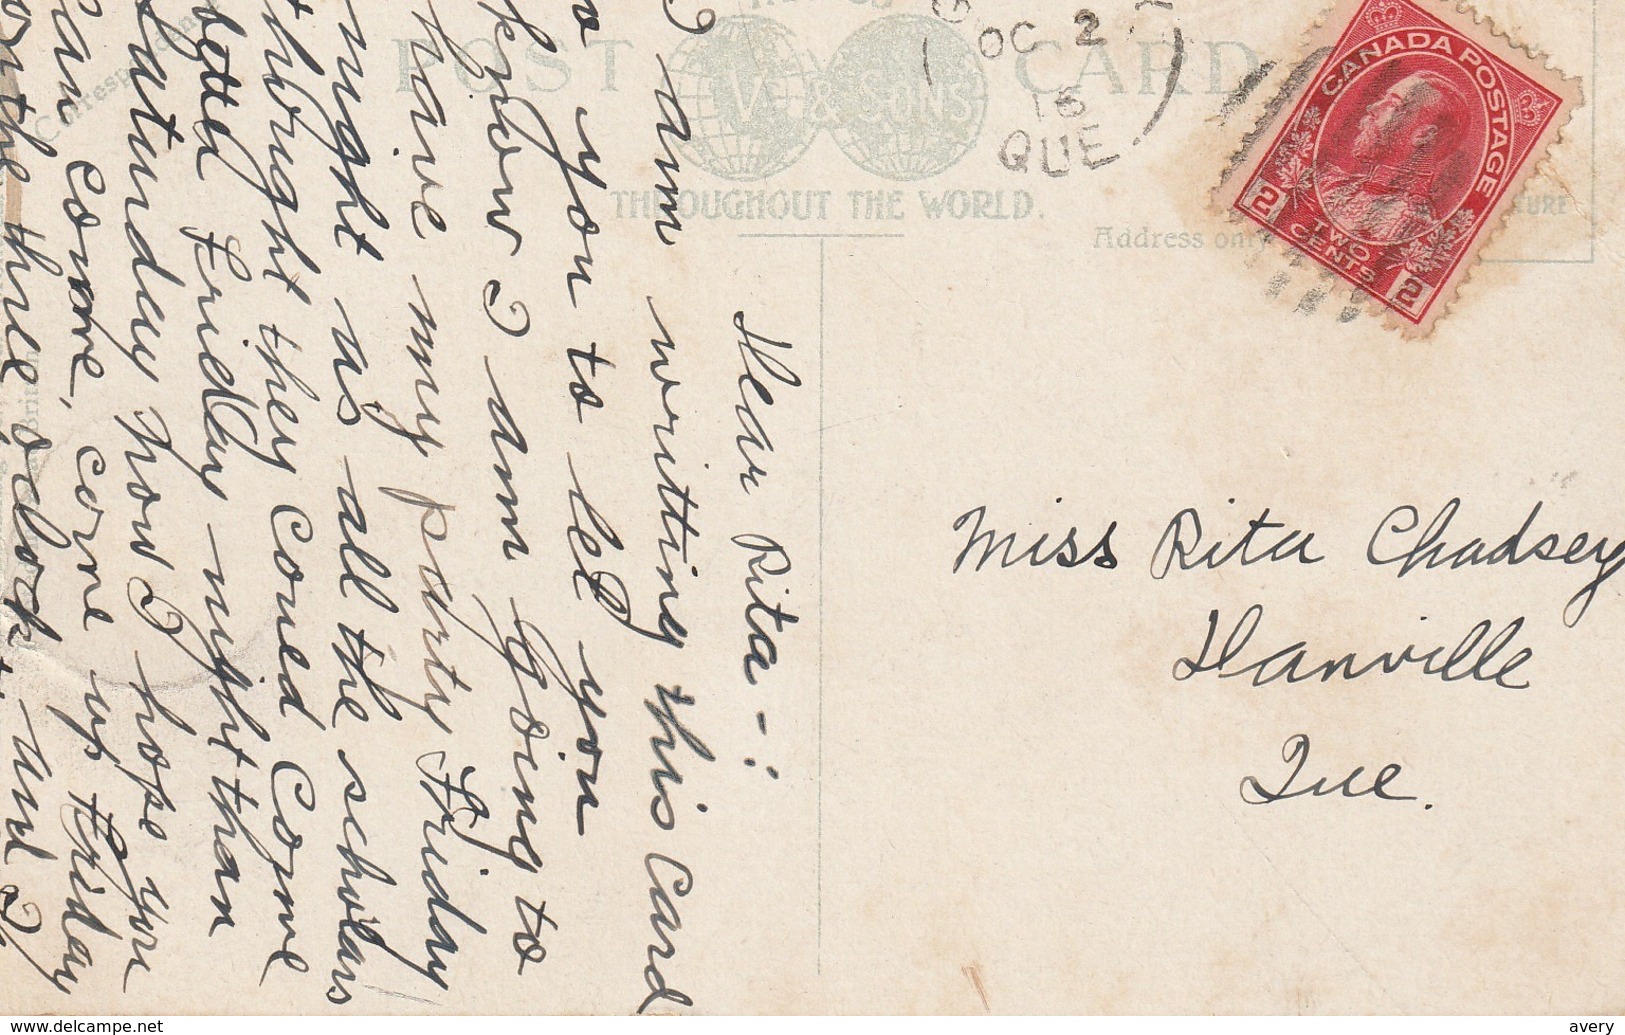 Correspon
POST CARD
V. & SONS
THROUGHOUT THE WORLD.
Address only
URE
OC 2
15
QUE
CANADA POSTAGE
2 TWO CENTS 2
Miss Rita Chadsey
Danville
Que.
Dear Rita -:
I am writting this card
to you to let you
know I am going to
have my party Friday
night as all the scholars
thought they could come
better Friday night than
Saturday now I hope you
can come, come up Friday
on the three oclock
delcampe.net
avery